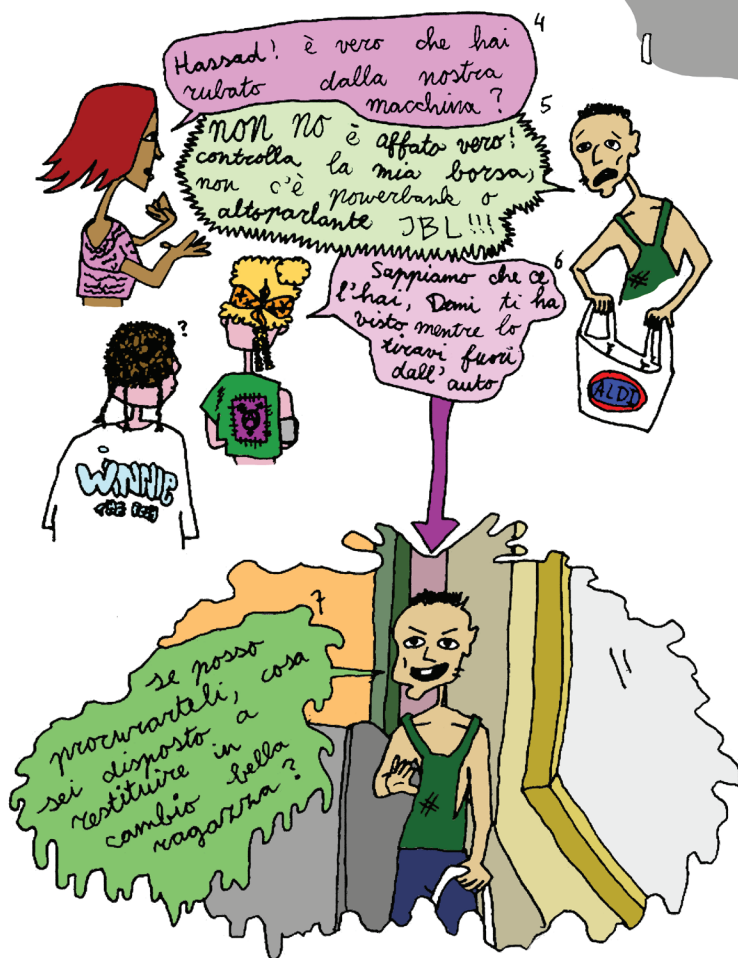 4
Hassad! è vero che hai
rubato dalla nostra
macchina?
5
NON NO è affato vero!
controlla la mia borsa,
non c'è powerbank o
altoparlante JBL!!!
6
Sappiamo che ce
l'hai, Demi ti ha
visto mentre lo
tiravi fuori
dall'auto
?
ALDI
WiNNiE
THE
#
7
se posso
procurarteli, cosa
sei disposto a
restituire in
cambio bella
ragazza?
#